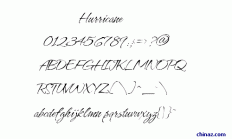 Hurricane
0123456789.;:=>?@
ABCDEFGHIJKLMNOPQ
RSTUVWXYZ[\]^_
abcdefghijklmnopqrstuvwxyz{|}
chinaz.com